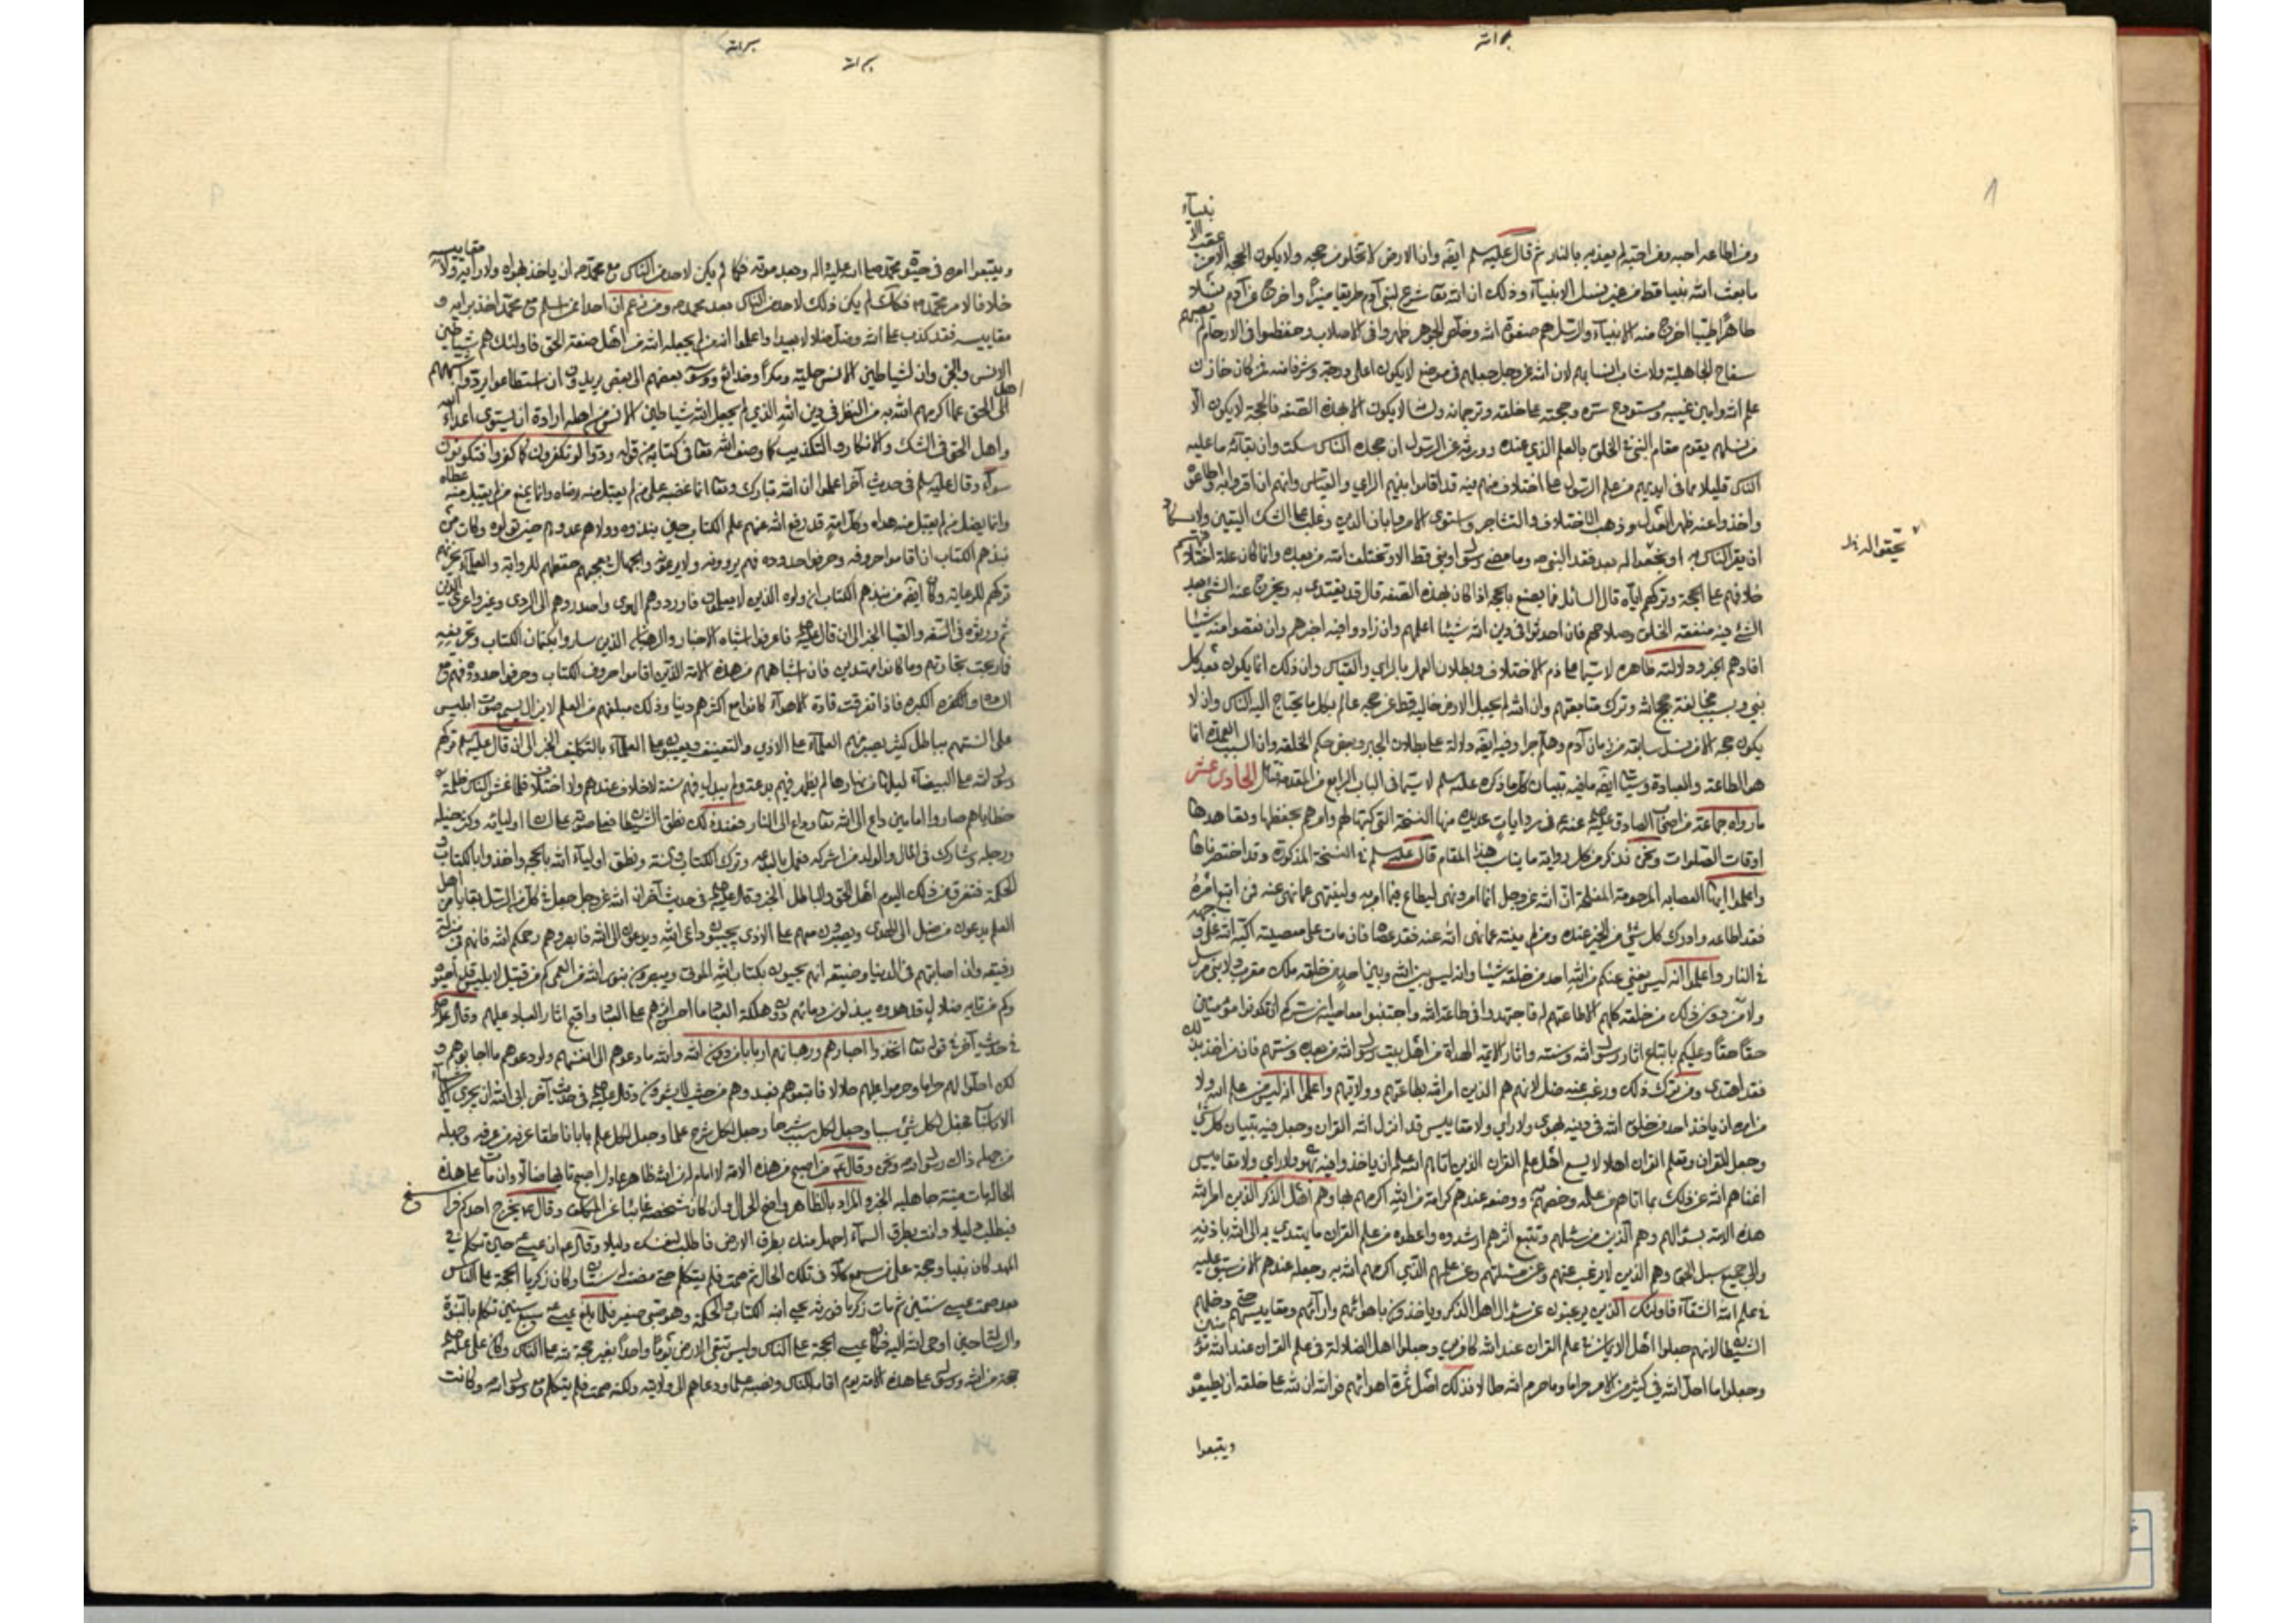 ومن اطاعه احبه ومن احبه لم يعذبه بالنار ثم قال عليه سلم ايضه وان الارض لا تخلو من حجه ولا يكون الحجه الا من عقب الانبياء
ما بعث الله نبيا قط من غير نسل الانبياء وذلك ان الله تعا شرع لبني آدم طريقا منيرا واخرج من آدم نسلا
طاهرا طيبا اخرج منه الانبياء والرسل هم صفوة الله وخلص الجوهر طهروا في الاصلاب وحفظوا في الارحام لم يصبهم
سفاح الجاهلية ولا شاب انسابهم لان الله عز وجل جعلهم في موضع لا يكون اعلى درجة وشرفا منه فمن كان خازن
علم الله وامين غيبه ومستودع سره وحجته على خلقه وترجمانه ولسانه لا يكون الا بهذه الصفه فالحجة لا يكون الا
من نسلهم يقوم مقام النبي في الخلق بالعلم الذي عنده وورثه عن الرسول ان جحده الناس سكت وان بقآء ما عليه
الناس قليلا مما في ايديهم من علم الرسول على اختلاف منهم فيه قد اقاموا بينهم الراي والقياس وانهم ان اقروا به واطاعوه
واخذوا عنه ظهر العدل وذهب الاختلاف والتشاجر واستوى الامر وابان الدين وغلب على الشك اليقين ولا يكاد
ان يقر الناس به او يحقوا له بعد فقد النبي ص وما مضى رسول او نبي قط الا وتختلف امته من بعده وانما كان علة اختلافهم
خلافهم على الحجة وتركهم اياه قال السائل فما يصنع بالحجه اذا كان بهذه الصفه قال قد يقتدى به ويخرج عنه الشئ بعد
الشئ فيه منفعته الخلق وصلاحهم فان احدثوا في دين الله شيئا اعلمهم وان زادوا فيه اخبرهم وان نقصوا منه شيئا
افادهم الخبر ودلالته ظاهره لا سيما على ذم الاختلاف وبطلان العمل بالراي والقياس وان ذلك انما يكون بعد كل
نبي وبسبب مخالفة حجج الله وترك متابعتهم وان الله لم يجعل الارض خاليه قط عن حجه عالم بكل ما يحتاج اليه الناس وان لا
يكون حجه الا من نسل سابقه من زمان آدم وهلم جرا وفيه ايضه دلالة على بطلان الجبر وبعض حكم الخلقه وان السبب العمدة انما
هو الطاعته والعبادة وسيأتي ايضه ما فيه تبيان كل ما ذكره عليه سلم لا سيما في الباب الرابع من المقدمة الحادي عشر
ما رواه جماعة من اصحاب الصادق عليه عنه ع في روايات عديده منها النسخة التي كتبها لهم وامرهم بحفظها وتعاهدها
اوقات الصلوات ونحن نذكر من كل رواية ما يناسب هذا المقام قال عليه سلم في النسخة المذكورة وقد اختصرناها
واعلموا ايتها العصابه المرحومة المفلحة ان الله عز وجل انما امر ونهى ليطاع فيما امر به ولينتهى عما نهى عنه فمن اتبع امره
فقد اطاعه وادرك كل شئ من الخير عنده ومن لم ينته عما نهى الله عنه فقد عصاه فان مات على معصيته اكبه الله على وجهه
في النار واعلموا انه ليس يغني عنكم من الله احد من خلقه شيئا وانه ليس بين الله وبين احد من خلقه ملك مقرب ولا نبي مرسل
ولا من دون ذلك من خلقه كلهم الا طاعتهم له فاجتهدوا في طاعة الله واجتنبوا معاصيه ان سركم ان تكونوا مؤمنين
حقا حقا وعليكم باتباع اثار رسول الله وسنته واثار الايمه الهداة من اهل بيت رسول الله من بعده وسنتهم فان من اخذ بذلك
فقد اهتدى ومن ترك ذلك ورغب عنه ضل لانهم هم الذين امر الله بطاعتهم وولايتهم واعلموا انه ليس من علم الله ولا
من امره ان ياخذ احد من خلق الله في دينه بهوى ولا راي ولا مقاييس قد انزل الله القران وجعل فيه تبيان كل شئ
وجعل للقران وتعلم القران اهلا لا يسع اهل علم القران الذين اتاهم الله علمه ان ياخذوا فيه بهوى ولا راي ولا مقاييس
اغناهم الله عن ذلك بما اتاهم من علمه وخصهم به ووضعه عندهم كرامة من الله اكرمهم بها وهم اهل الذكر الذين امر الله
هذه الامة بسؤالهم وهم الذين من سئلهم وتتبع اثرهم ارشدوه واعطوه من علم القران ما يهتدي به الى الله باذنه
والى جميع سبل الحق وهم الذين لا يرغب عنهم وعن مسئلتهم وعن علمهم الذي اكرمهم الله به وجعله عندهم الا من سبق عليه
في علم الله الشقآء فاولئك الذين يرغبون عن سؤال اهل الذكر وياخذون باهوائهم وارآئهم ومقاييسهم حتى دخلهم
الشيطا لانهم جعلوا اهل الايمان في علم القران عند الله كافرين وجعلوا اهل الضلالة في علم القران عند الله مؤمنين
وجعلوا ما احل الله في كثير من الامر حراما وما حرم الله حلالا فذلك اصل ثمرة اهوائهم فو الله ان لله على خلقه ان يطيعوه
ويتبعوا
ويتبعوا امره في حيوة محمد صلى الله عليه واله وبعد موته فكما لم يكن لاحد من الناس مع محمد ص ان ياخذ بهواه ولا رايه ولا مقاييسه
خلافا لامر محمد ص فكذلك لم يكن ذلك لاحد من الناس بعد محمد ص ومن زعم ان احدا ممن اسلم مع محمد اخذ برايه و
مقاييسه فقد كذب على الله وضل ضلالا بعيدا واعلموا ان من لم يجعله الله من اهل صفة الحق فاولئك هم شياطين
الانس والجن وان لشياطين الانس حيلة ومكرا وخدائع ووسوسة بعضهم الى بعض يريدون ان استطاعوا ان يردوا
اهل الحق عما اكرمهم الله به من النظر في دين الله الذي لم يجعل الله شياطين الانس من اهله ارادة ان يستوى اعداء الله
واهل الحق في الشك والانكار والتكذيب كما وصف الله تعا في كتابه من قوله ودوا لو تكفرون كما كفروا فتكونون
سوآء وقال عليه سلم في حديث آخر اعلموا ان الله تبارك وتعا انما غضبه على من لم يقبل منه رضاه وانما يمنع من لم يقبل منه عطاه
وانما يضل من لم يقبل منه هداه وكل امة قد رفع الله عنهم علم الكتاب حين نبذوه وولاهم عدوهم حين تولوه وكان من
نبذهم الكتاب ان اقاموا حروفه وحرفوا حدوده فهم يروونه ولا يرعونه والجهال يعجبهم حفظهم للرواية والعلمآء يحزنهم
تركهم للرعاية وكان ايضه من نبذهم الكتاب ان ولوه الذين لا يعلمون فاوردوهم الهوى واصدروهم الى الردى وغيروا عرى الدين
ثم ورثوه في السفه والصبا الخبر الى ان قال عليه فاعرفوا اشباه الاحبار والرهبان الذين ساروا بكتمان الكتاب وتحريفه
فما ربحت تجارتهم وما كانوا مهتدين فان اشباههم من هذه الامة الذين اقاموا حروف الكتاب وحرفوا حدوده فهم مع
السادة والكثره الكبره فاذا تفرقت قادة الاهوآء كانوا مع اكثرهم دنيا وذلك مبلغهم من العلم لا يزال يسمع صوت ابليس
على السنتهم بباطل كثير يصبر منهم العلمآء على الاذى والتعنيف ويعيبون على العلمآء بالتكليف الخبر الى ان قال عليه سلم تركهم
رسول الله على البيضآء ليلها من نهارها لم يظهر فيهم بدعة ولم يبدل فيهم سنة لا خلاف عندهم ولا اختلاف فلما غشى الناس ظلمة
خطاياهم صاروا امامين داع الى الله تعا وداع الى النار فعند ذلك نطق الشيطا فعلا صوته على لسان اوليائه وكثر خيله
ورجله وشارك في المال والولد من اشركه فعمل بالبدعه وترك الكتاب والسنة ونطق اوليآء الله بالحجه واخذوا بالكتاب و
الحكمة فتفرق من ذلك اليوم اهل الحق والباطل الخبر وقال عليه في حديث آخر ان الله عز وجل جعل في كل من الرسل بقايا من اهل
العلم يدعون من ضل الى الهدى ويصبرون معهم على الاذى يجيبون داعي الله ويدعون الى الله فابصرهم رحمكم الله فانهم في منزلة
رفيعه وان اصابتهم في الدنيا وضيعه انهم يحيون بكتاب الله الموتى ويبصرون بنور الله من العمى كم من قتيل لابليس قد احيوه
وكم من تايه ضال قد هدوه يبذلون دمائهم دون هلكة العباد ما احسن اثرهم على العباد واقبح اثار العباد عليهم وقال عليه
في حديث آخر في قوله تعا اتخذوا احبارهم ورهبانهم اربابا من دون الله والله ما دعوهم الى انفسهم ولو دعوهم ما اجابوهم و
لكن احلوا لهم حراما وحرموا عليهم حلالا فاتبعوهم فعبدوهم من حيث لا يشعرون وقال عليه في حديث آخر ابى الله ان يجري الاشياء
الا بالاسباب فجعل لكل شئ سببا وجعل لكل سبب شرحا وجعل لكل شرح علما وجعل لكل علم بابا ناطقا عرفه من عرفه وجهله
من جهله ذاك رسول الله ونحن وقال ع من اصبح من هذه الامة لا امام له من الله ظاهر عادل اصبح تايها ضالا وان مات على هذه
الحاله مات ميتة جاهليه الخبر والمراد بالظاهر واضح الحال وان كان شخصه غائبا عن المكلف وقال ع يخرج احدكم فراسخ
فيطلب دليلا وانت بطرق السمآء اجهل منك بطرق الارض فاطلب لنفسك دليلا وقال ع ان عيسى حين تكلم في
المهد كان نبيا وحجة على من سمع كلامه في تلك الحال ثم صمت فلم يتكلم حتى مضت له سنتان وكان زكريا الحجة على الناس
بعد صمت عيسى سنتين ثم مات زكريا فورثه يحيى ابنه الكتاب والحكمة وهو صبي صغير فلما بلغ عيسى ع سبع سنين تكلم بالنبوة
والرسالة حين اوحى الله اليه فكان عيسى الحجة على الناس وليس تبقى الارض يوما واحدا بغير حجة لله على الناس وكان علي عليه
حجة من الله ورسوله على هذه الامة يوم اقامه للناس ونصبه علما ودعاهم الى ولايته ولكنه صمت فلم يتكلم مع رسول الله وكانت